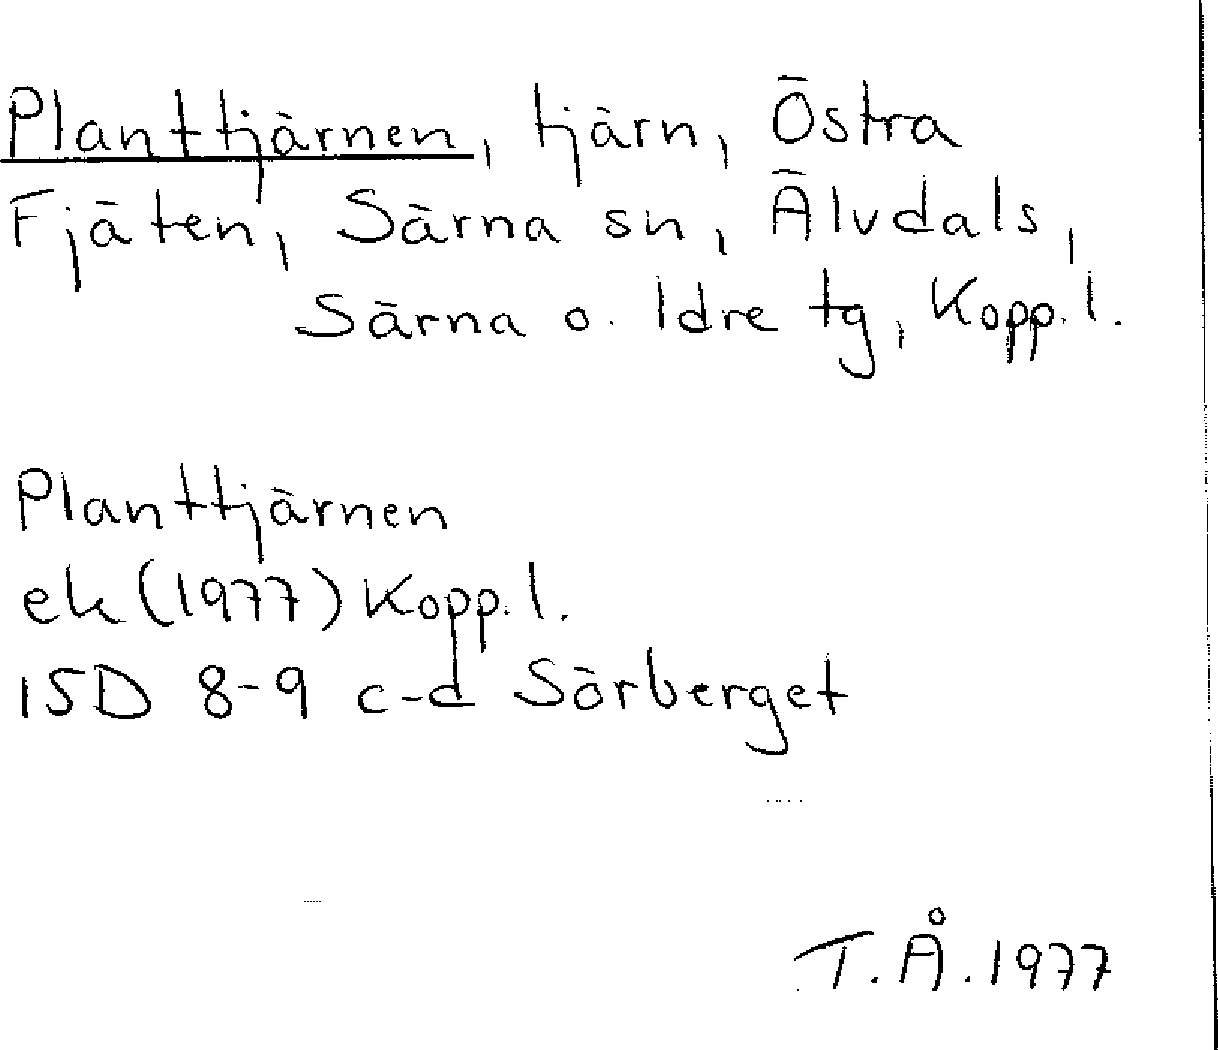 Planttjärnen, tjärn, Östra
Fjäten, Särna sn, Älvdals,
Särna o. Idre tg, Kopp. l.
Planttjärnen
ek (1977) Kopp. l.
15D 8-9 c-d Sörberget
T.Å. 1977